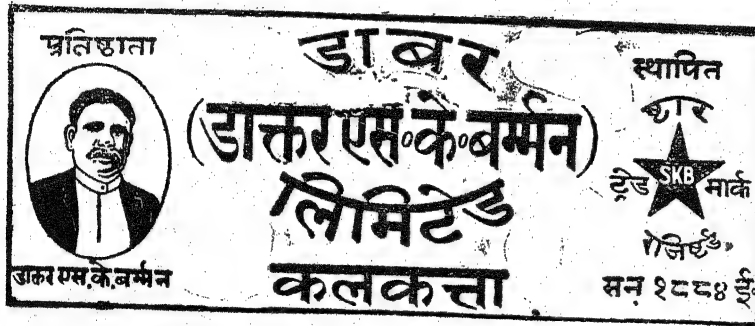 प्रतिष्ठाता
डाक्तर एस.के.बर्म्मन
डाबर
(डाक्तर एस॰के॰बर्म्मन)
लिमिटेड
कलकत्ता
स्थापित
ष्टार
ट्रेड SKB मार्क
रेजिष्टर्ड
सन १८८४ ई॰